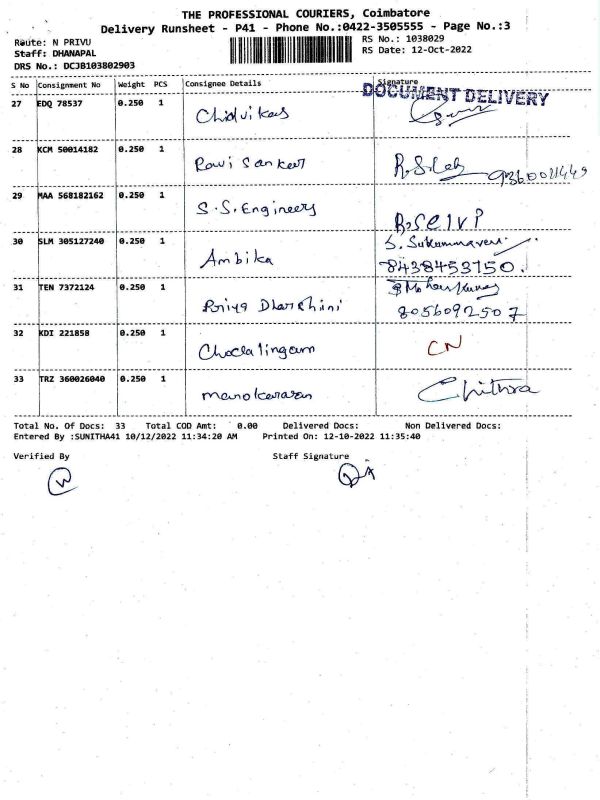 THE PROFESSIONAL COURIERS, Coimbatore
Delivery Runsheet - P41 - Phone No.:0422-3505555 - Page No.:3
Route: N PRIVU
Staff: DHANAPAL
DRS No.: DCJB103802903
RS No.: 1038029
RS Date: 12-Oct-2022
S No Consignment No Weight PCS Consignee Details Signature
DOCUMENT DELIVERY
27 EDQ 78537 0.250 1 Chidvikas
28 KCM 50014182 0.250 1 Ravi Sankar
29 MAA 568182162 0.250 1 S.S.Engineers
30 SLM 305127240 0.250 1 Ambika
8438453150.
31 TEN 7372124 0.250 1 Priya Dharshini
8056092507
32 KDI 221858 0.250 1 Choclalingam CN
33 TRZ 360026040 0.250 1 manokaran Chithra
Total No. Of Docs: 33 Total COD Amt: 0.00 Delivered Docs: Non Delivered Docs:
Entered By :SUNITHA41 10/12/2022 11:34:20 AM Printed On: 12-10-2022 11:35:40
Verified By Staff Signature